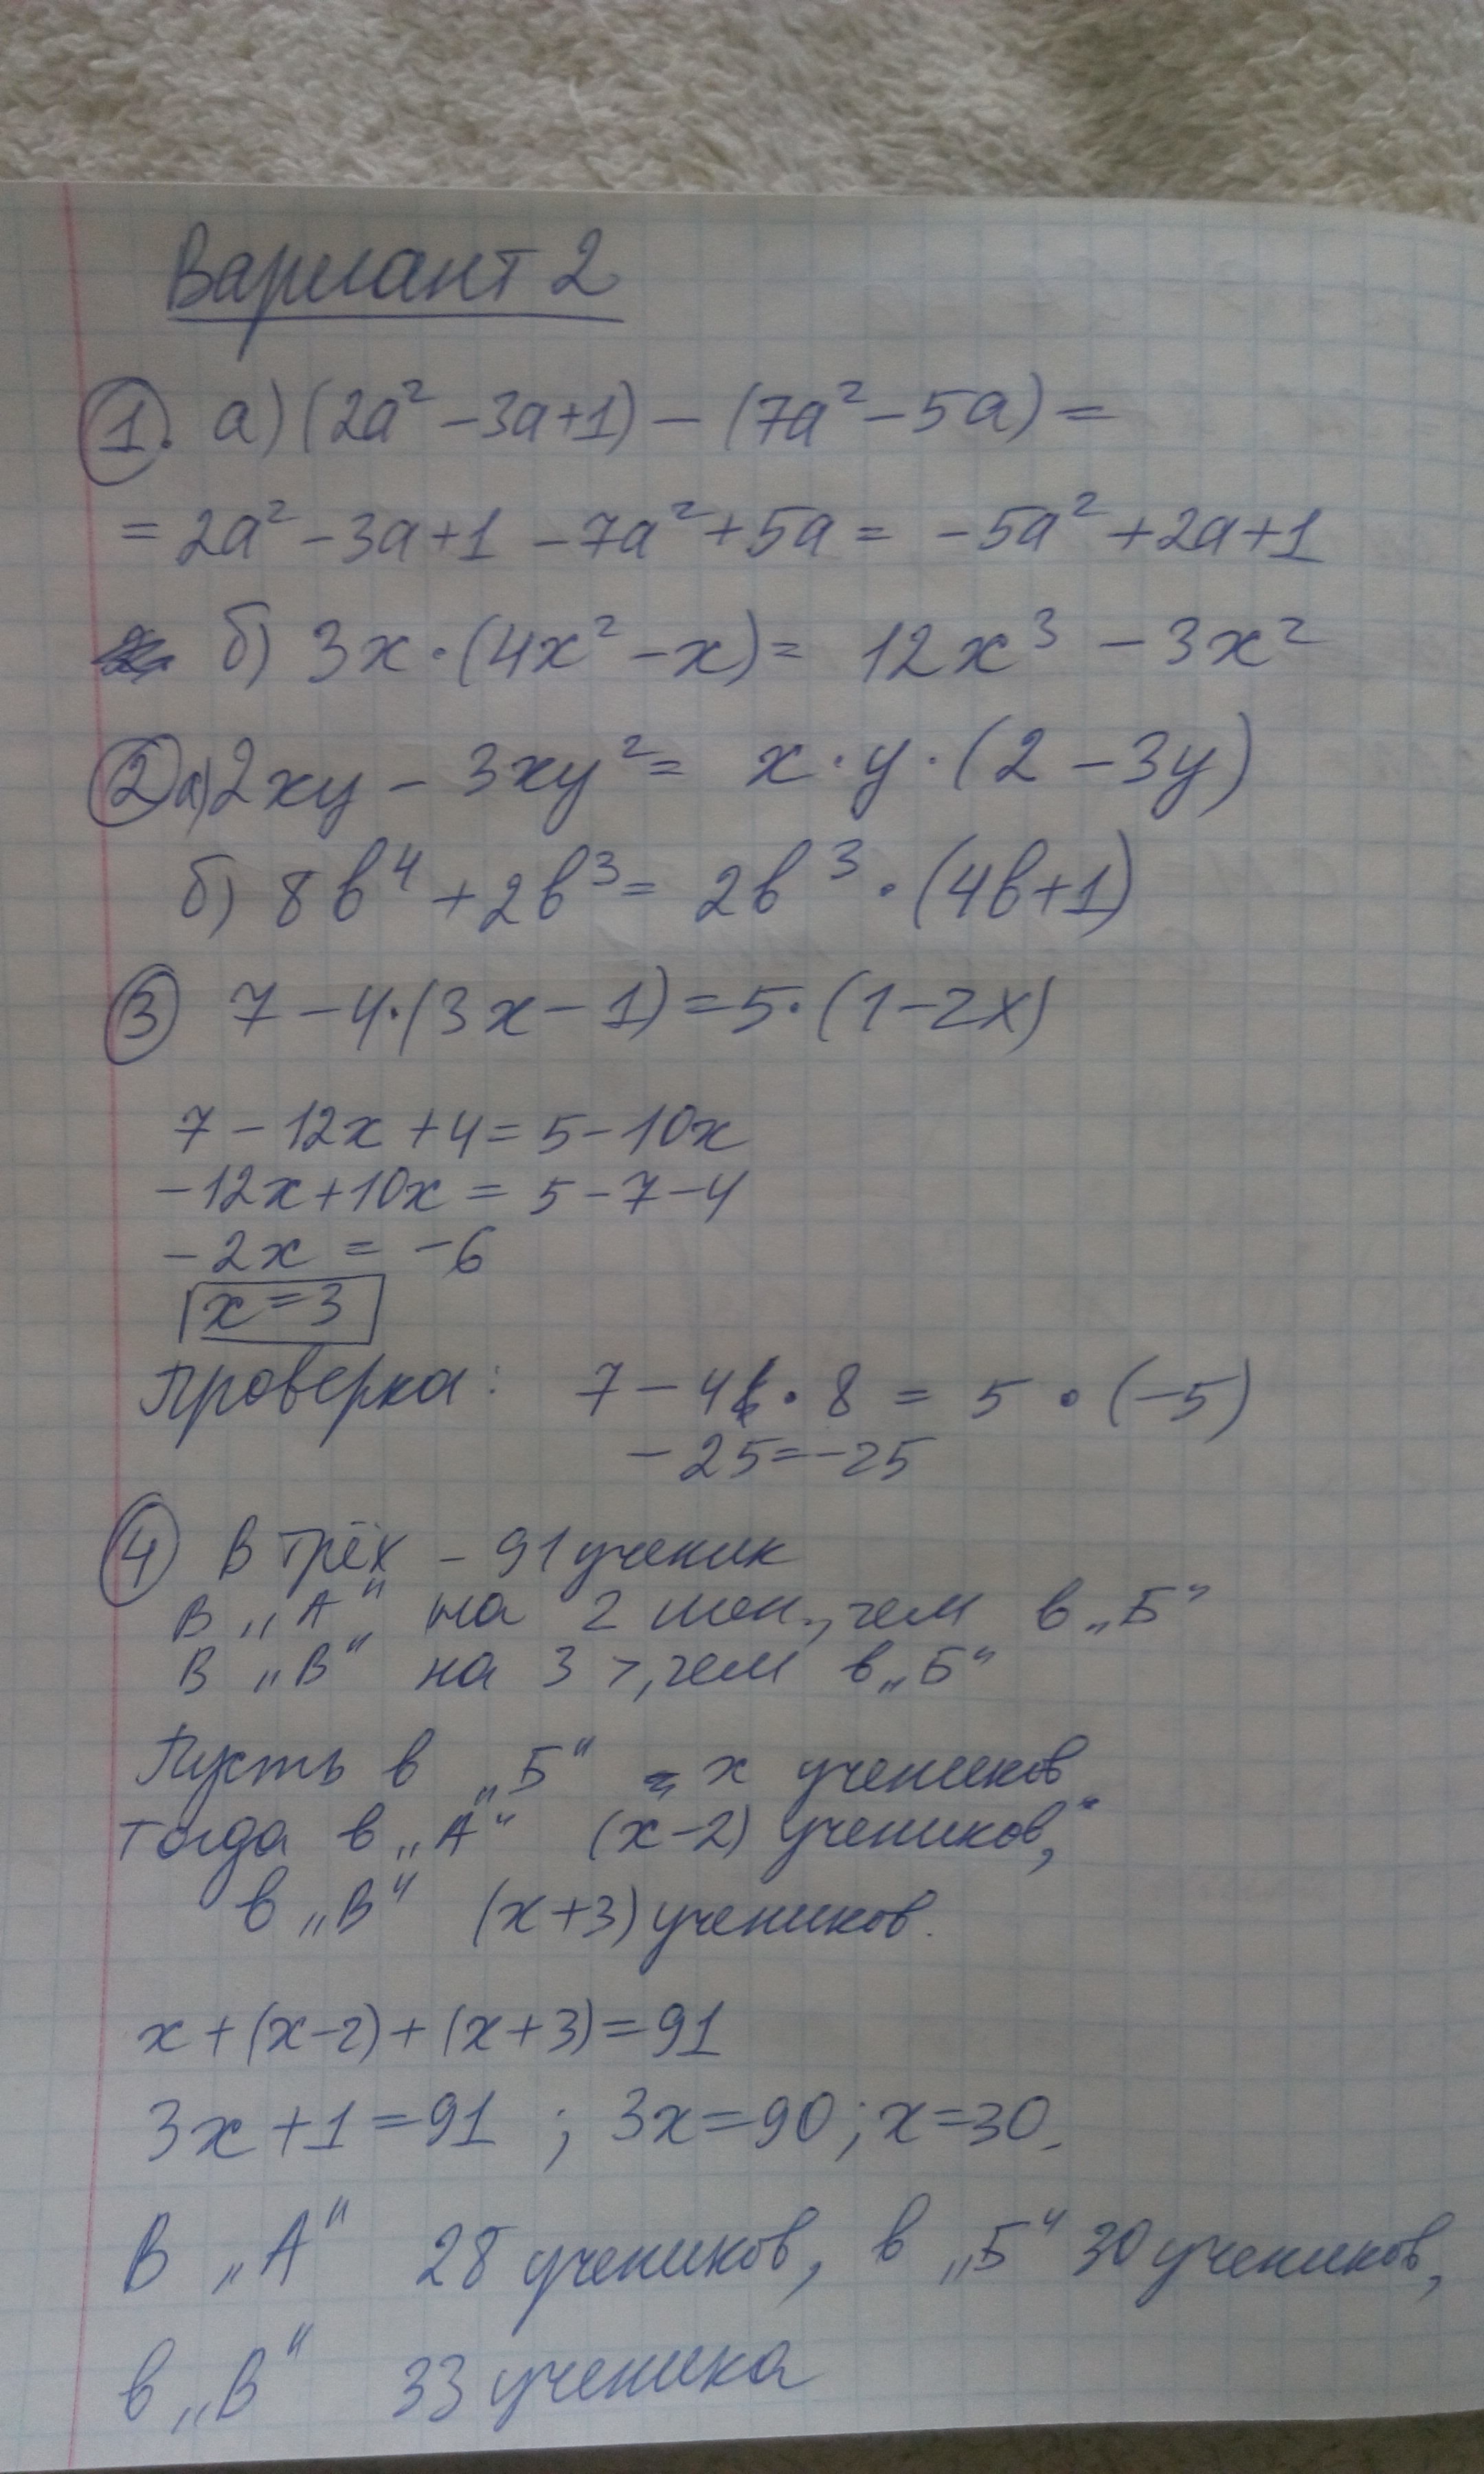 Вариант 2
1. а) (2a² - 3a + 1) - (7a² - 5a) =
= 2a² - 3a + 1 - 7a² + 5a = -5a² + 2a + 1
б) 3x · (4x² - x) = 12x³ - 3x²
2 а) 2xy - 3xy² = x · y · (2 - 3y)
б) 8b⁴ + 2b³ = 2b³ · (4b + 1)
3 7 - 4 · (3x - 1) = 5 · (1 - 2x)
7 - 12x + 4 = 5 - 10x
-12x + 10x = 5 - 7 - 4
-2x = -6
x = 3
Проверка: 7 - 4 · 8 = 5 · (-5)
-25 = -25
4 В трёх - 91 ученик
В „А“ на 2 мен., чем в „Б“
В „В“ на 3 >, чем в „Б“
Пусть в „Б“ - x учеников
тогда в „А“ (x-2) учеников,
в „В“ (x+3) учеников.
x + (x-2) + (x+3) = 91
3x + 1 = 91 ; 3x = 90 ; x = 30.
В „А“ 28 учеников, в „Б“ 30 учеников,
в „В“ 33 ученика